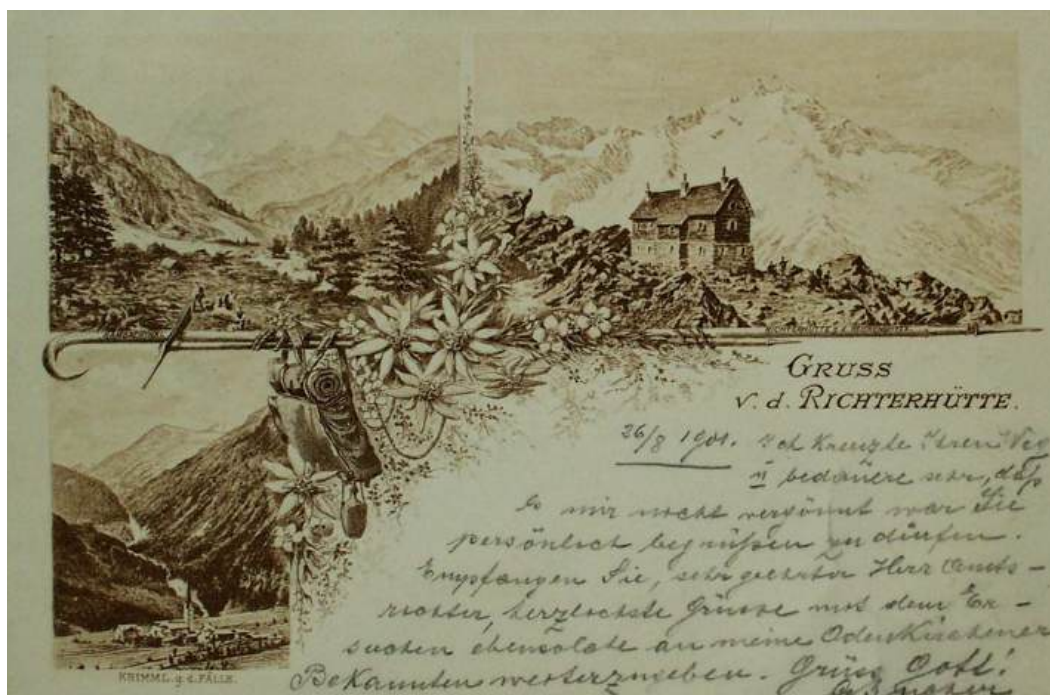 GRUSS
v. d. RICHTERHÜTTE.
26/8 1901. Ich kreuzte Ihren Weg
u bedauere sehr, daß
es mir nicht vergönnt war Sie
persönlich begrüßen zu dürfen.
Empfangen Sie, sehr geehrter Herr Amts-
richter, herzlichste Grüsse mit dem Er-
suchen ebensolche an meine Odenkirchener
Bekannten weiterzugeben. Grüss Gott!
KRIMML. g. d. FÄLLE.